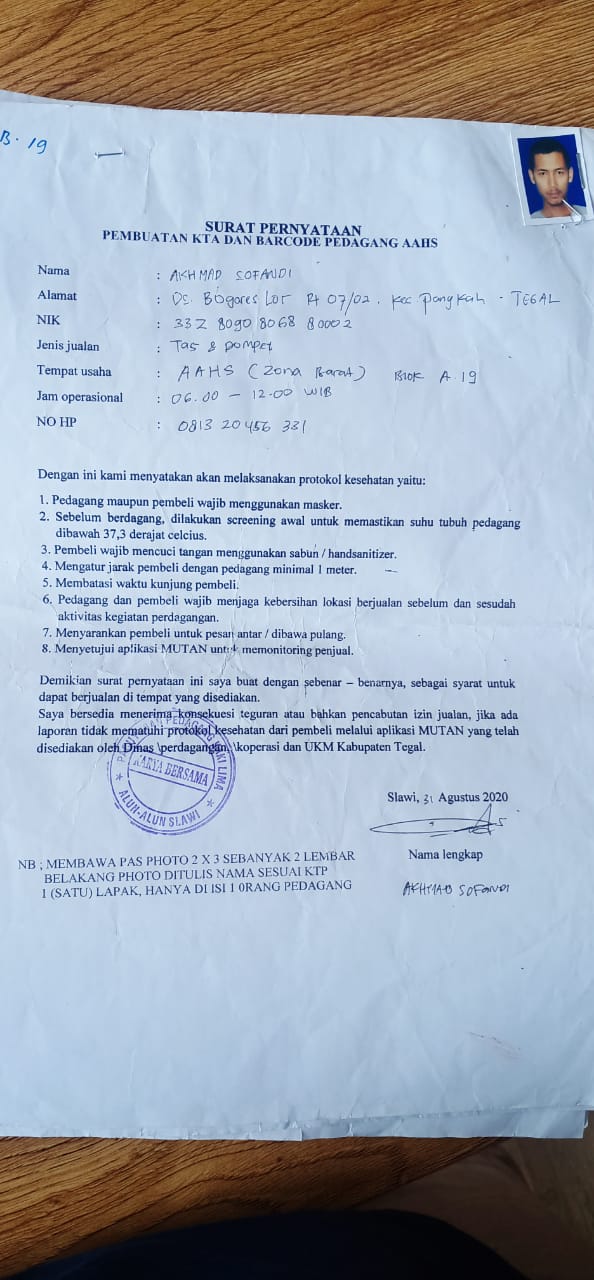 B. 19
SURAT PERNYATAAN
PEMBUATAN KTA DAN BARCODE PEDAGANG AAHS
Nama : AKHMAD SOFANDI
Alamat : Ds. Bogares Lor Rt 07/02. Kec Pangkah - TEGAL
NIK : 33Z 8090 8068 80002
Jenis jualan : Tas & Dompet
Tempat usaha : AAHS (Zona Barat) Blok A 19
Jam operasional : 06.00 - 12.00 WIB
NO HP : 0813 20456 331
Dengan ini kami menyatakan akan melaksanakan protokol kesehatan yaitu:
1. Pedagang maupun pembeli wajib menggunakan masker.
2. Sebelum berdagang, dilakukan screening awal untuk memastikan suhu tubuh pedagang
dibawah 37,3 derajat celcius.
3. Pembeli wajib mencuci tangan menggunakan sabun / handsanitizer.
4. Mengatur jarak pembeli dengan pedagang minimal 1 meter.
5. Membatasi waktu kunjung pembeli.
6. Pedagang dan pembeli wajib menjaga kebersihan lokasi berjualan sebelum dan sesudah
aktivitas kegiatan perdagangan.
7. Menyarankan pembeli untuk pesan antar / dibawa pulang.
8. Menyetujui aplikasi MUTAN untuk memonitoring penjual.
Demikian surat pernyataan ini saya buat dengan sebenar – benarnya, sebagai syarat untuk
dapat berjualan di tempat yang disediakan.
Saya bersedia menerima konsekuesi teguran atau bahkan pencabutan izin jualan, jika ada
laporan tidak mematuhi protokol kesehatan dari pembeli melalui aplikasi MUTAN yang telah
disediakan oleh Dinas \perdagangan, \koperasi dan UKM Kabupaten Tegal.
PEDAGANG KAKI LIMA
KARYA BERSAMA
ALUN-ALUN SLAWI
Slawi, 31 Agustus 2020
Nama lengkap
AKHMAD SOFANDI
NB ; MEMBAWA PAS PHOTO 2 X 3 SEBANYAK 2 LEMBAR
BELAKANG PHOTO DITULIS NAMA SESUAI KTP
1 (SATU) LAPAK, HANYA DI ISI 1 0RANG PEDAGANG